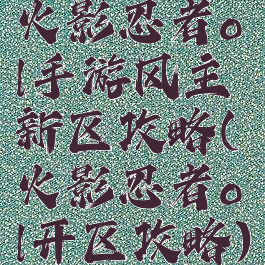 火影忍者。
|手游风主
新区攻略(
火影忍者。
|开区攻略)